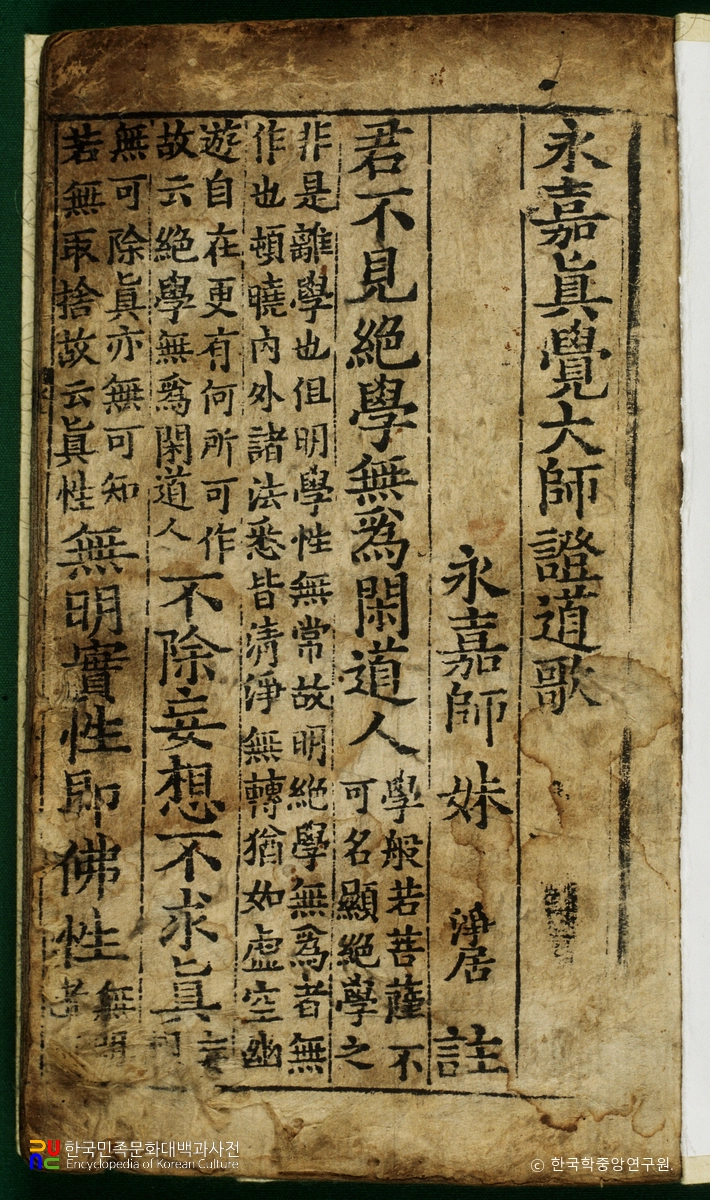 永嘉眞覺大師證道歌
永嘉師 妹 淨居 註
君不見絕學無爲閑道人
學般若菩薩不
可名顯絕學之
非是離學也但明學性無常故明絕學無爲者無
作也頓曉內外諸法悉皆清淨無轉猶如虛空幽
遊自在更有何所可作
故云絕學無爲閑道人
不除妄想不求眞
妄
無可除眞亦無可知
若無取捨故云眞性
無明實性即佛性
無明
한국민족문화대백과사전
Encyclopedia of Korean Culture
© 한국학중앙연구원.